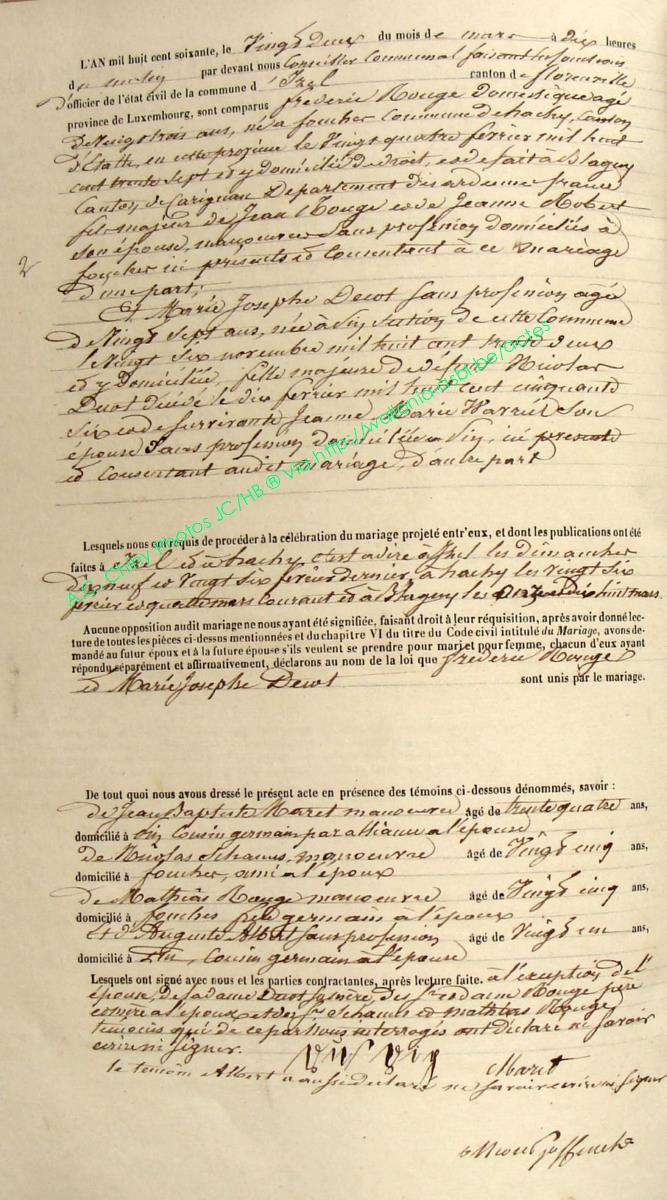 L'AN mil huit cent soixante, le Vingt deux du mois de mars à dix heures
du matin par devant nous Conseiller Communal faisant les fonctions
d'officier de l'état civil de la commune d'Izel canton de florenville
province de Luxembourg, sont comparus frederic Rouge domestique agé
de Vingt trois ans, né a fouches Commune de hachy, Canton
d'Etalle, en cette province le Vingt quatre fevrier mil huit
cent trente sept et y domicilié de droit, et de fait à Blagny
Canton de Carignan Departement des ardennes france
fils majeur de Jean Rouge et de Jeanne Robert
son épouse, manoeuvres sans profession domiciliés à
fouches ici présents et Consentant à ce mariage
2
D'une part;
Et Marie Josephe Dewot sans profession agé
de Vingt sept ans, née à Sin, section de cette Commune
le Vingt Six novembre mil huit cent trente deux
et y Domiciliée, fille majeure de défunt Nicolas
Duot décédé le dix fevrier mil huit cent cinquante
Six et de survivante Jeanne Marie son
épouse sans profession domiciliée a Sin, ici presente
et Consentant audit mariage, d'autre part
A.G. Chiny Photos JC/HB ® via http://wallonia-asbl.be/actes
Lesquels nous ont requis de procéder à la célébration du mariage projeté entr'eux, et dont les publications ont été
faites à Izel et à hachy, c'est a dire à Izel les dimanches
dix neuf et Vingt six fevrier dernier, à hachy les Vingt six
fevrier et quatre mars Courant et à Blagny les onze et dix huit mars.
Aucune opposition audit mariage ne nous ayant été signifiée, faisant droit à leur réquisition, après avoir donné lec-
ture de toutes les pièces ci-dessus mentionnées et du chapitre VI du titre du Code civil intitulé du Mariage, avons de-
mandé au futur époux et à la future épouse s'ils veulent se prendre pour mari et pour femme, chacun d'eux ayant
répondu séparément et affirmativement, déclarons au nom de la loi que frederic Rouge
et Marie Josephe Dewot sont unis par le mariage.
De tout quoi nous avons dressé le présent acte en présence des témoins ci-dessous dénommés, savoir :
de Jean Baptiste Maret manoeuvre âgé de trente quatre ans,
domicilié à Sin, Cousin germain par alliance a l'épouse
de Nicolas Schamus, manoeuvre âgé de Vingt cinq ans,
domicilié à fouches, ami a l'époux
de Mathias Rouge manoeuvre âgé de Vingt cinq ans,
domicilié à fouches germain a l'époux
Et d'Auguste Albert sans profession âgé de Vingt un ans,
domicilié à Sin, Cousin germain a l'épouse
Lesquels ont signé avec nous et les parties contractantes, après lecture faite. à l'exception de l'
épouse, de la dame sa mère, des Sr. et dame Rouge père
et mère a l'époux et des Sr. Schamus et mathias Rouge
temoins qui de ce par nous interrogés ont déclaré ne savoir
ecrire ni signer.
Maret
le temoin Albert a aussi declaré ne savoir ecrire ni signer